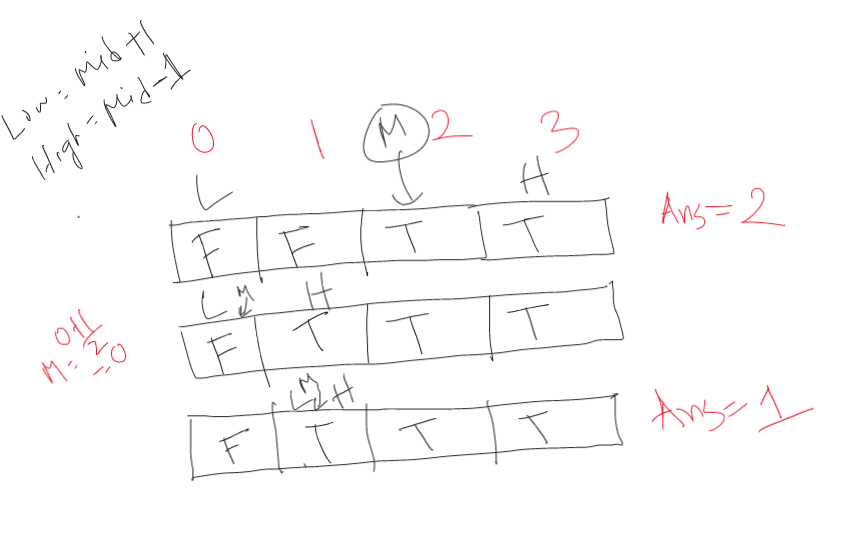 Low = mid+1
High = Mid-1
0 1 M 2 3
L H
F F T T Ans = 2
L M H
F T T T
0+1
M = 2 = 0
L M H
F T T T Ans = 1